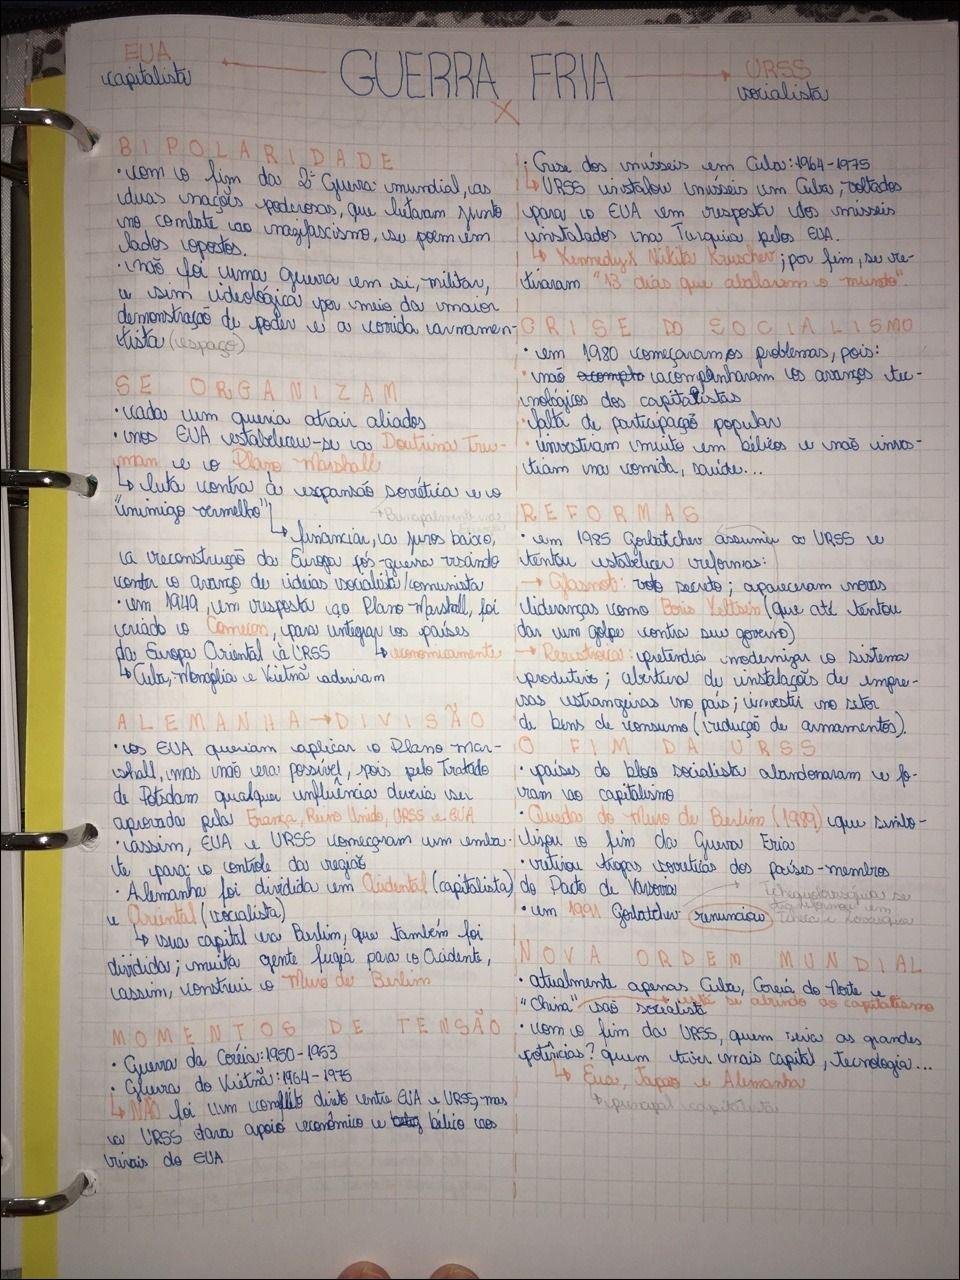 EUA
capitalista
GUERRA FRIA
X
URSS
socialista
BIPOLARIDADE
• com o fim da 2ª Guerra mundial, as
duas nações poderosas, que lutaram junto
no combate ao nazifascismo, se põem em
lados opostos.
• não foi uma guerra em si, militar,
e sim ideológica por meio da maior
demonstração de poder e a corrida armamen-
tista (espaço)
SE ORGANIZAM
• cada um queria atrair aliados
• nos EUA estabeleceu-se a Doutrina Tru-
man e o Plano Marshall
↳ luta contra à expansão soviética e o
"inimigo vermelho"
↳ financiar, a juros baixo,
a reconstrução da Europa pós-guerra visando
conter o avanço de ideias socialista/comunista
• em 1949, em resposta ao Plano Marshall, foi
criado o Comecon, para integrar os países
da Europa Oriental à URSS ↳ economicamente
↳ Cuba, Mongólia e Vietnã aderiram
ALEMANHA → DIVISÃO
• os EUA queriam aplicar o Plano Mar-
shall, mas não era possível, pois pelo Tratado
de Potsdam qualquer influência deveria ser
aprovada pela França, Reino Unido, URSS e EUA
• assim, EUA e URSS começaram um emba-
te para o controle da região
• Alemanha foi dividida em Ocidental (capitalista)
e Oriental (socialista)
↳ sua capital era Berlim, que também foi
dividida; muita gente fugia para o Ocidente,
assim, construiu o Muro de Berlim
MOMENTOS DE TENSÃO
• Guerra da Coréia: 1950-1953
• Guerra do Vietnã: 1964-1975
↳ NÃO foi um conflito direto entre EUA e URSS, mas
a URSS dava apoio econômico e bélico aos
rivais do EUA
• Crise dos mísseis em Cuba: 1964-1975
↳ URSS instalou mísseis em Cuba, voltados
para o EUA em resposta dos mísseis
instalados na Turquia pelos EUA.
↳ Kennedy X Nikita Kruschev; por fim, se re-
tiraram "13 dias que abalaram o mundo"
CRISE DO SOCIALISMO
• em 1980 começaram os problemas, pois:
• não acompanharam os avanços tec-
nológicos dos capitalistas
• falta de participação popular
• investiam muito em bélicos e não inves-
tiam na comida, saúde...
REFORMAS
• em 1985 Gorbatchev assumiu a URSS e
tentou estabelecer reformas:
→ Glasnost: voto secreto; apareceram novas
lideranças como Boris Yeltsin (que até tentou
dar um golpe contra seu governo)
→ Perestroica: pretendia modernizar o sistema
produtivo; abertura de instalações de empre-
sas estrangeiras no país; investir no setor
de bens de consumo (redução de armamentos).
O FIM DA URSS
• países do bloco socialista abandonaram e fo-
ram ao capitalismo
• Queda do Muro de Berlim (1989) que simbo-
lizou o fim da Guerra Fria
• retirou tropas soviéticas dos países-membros
do Pacto de Varsóvia
• em 1991 Gorbatchev renunciou
Tchecoslováquia se
em
Tcheca e Eslováquia
NOVA ORDEM MUNDIAL
• atualmente apenas Cuba, Coreia do Norte e
"China" são socialista → está se abrindo ao capitalismo
• com o fim da URSS, quem seria as grandes
potências? quem tiver mais capital, tecnologia...
↳ Eua, Japão e Alemanha
↳ principal capitalista